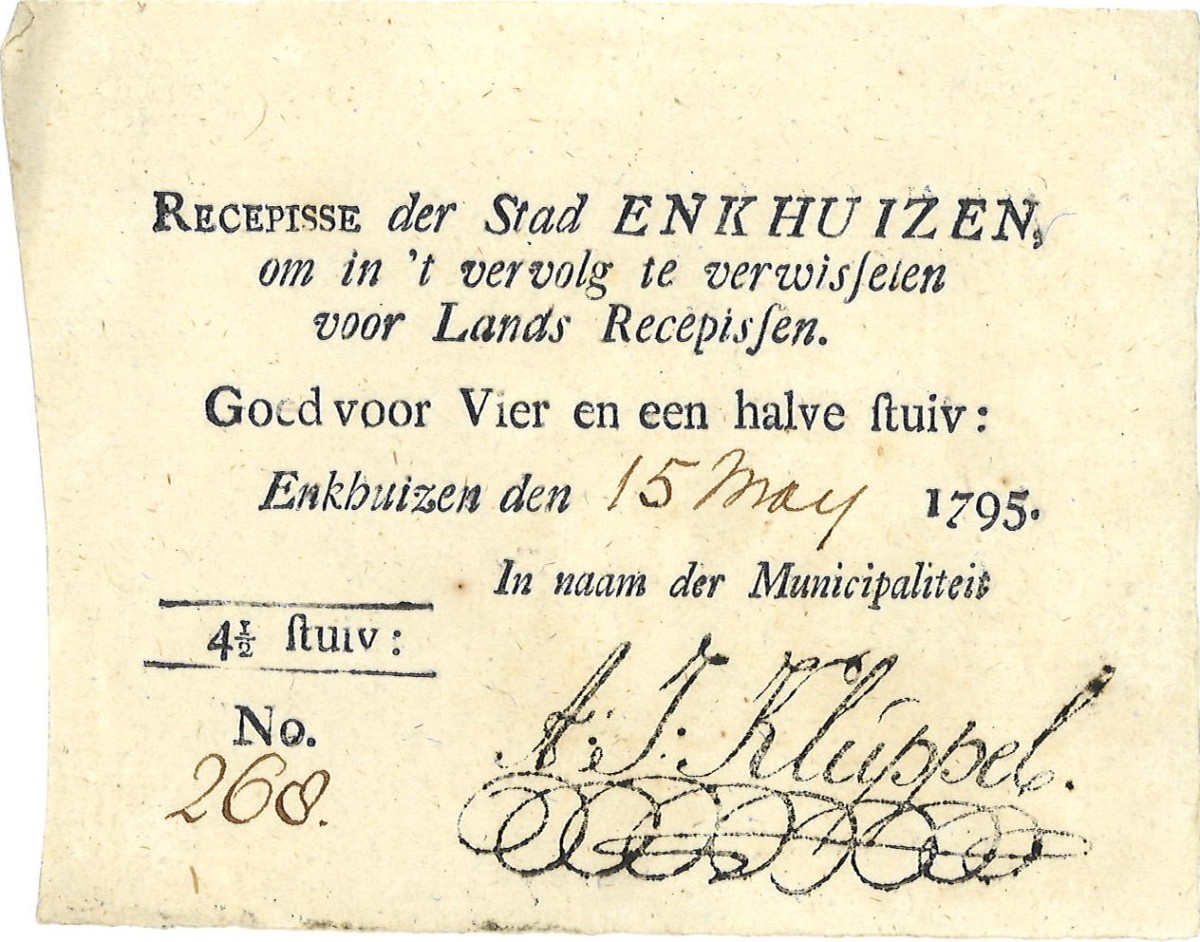 RECEPISSE der Stad ENKHUIZEN,
om in 't vervolg te verwisſelen
voor Lands Recepisſen.
Goed voor Vier en een halve ſtuiv:
Enkhuizen den 15 May 1795.
In naam der Municipaliteit
4½ ſtuiv:
No.
268.
A: J: Klúppel.